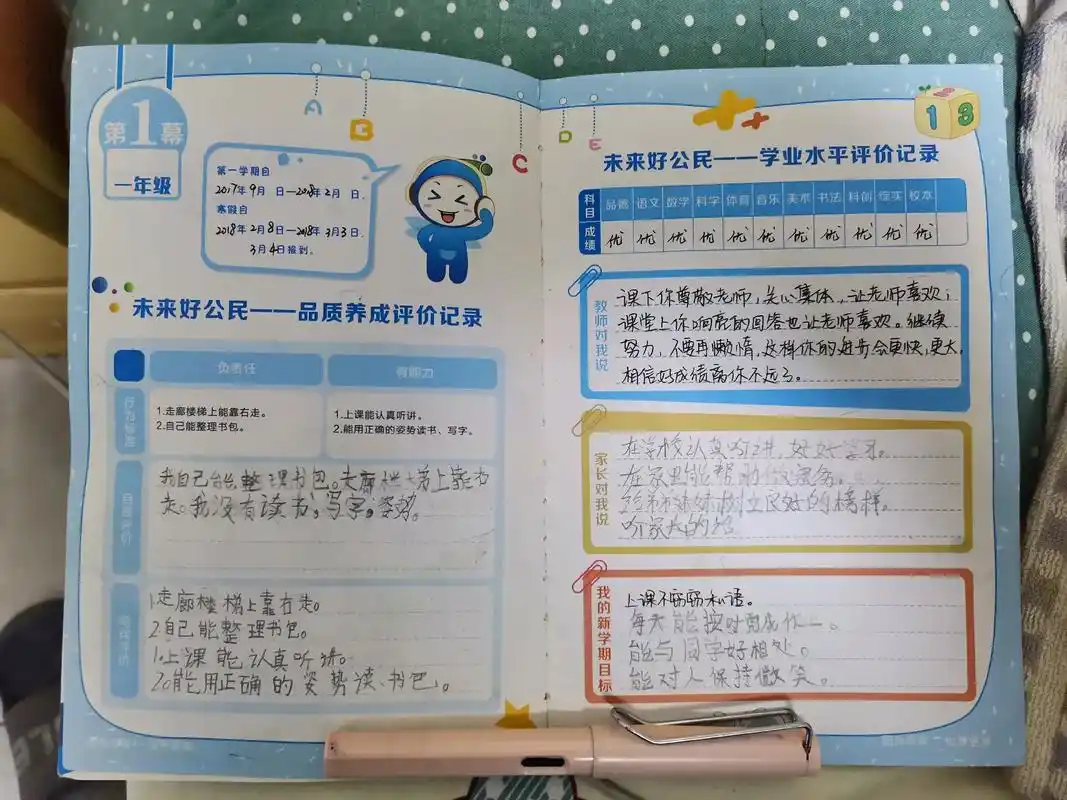 第1幕
一年级
第一学期自
2017年9月 日—2018年2月 日,
寒假自
2018年2月8日—2018年3月3日,
3月4日报到。
A
B
C
未来好公民——品质养成评价记录
负责任 有能力
行为标准
1.走廊楼梯上能靠右走。
2.自己能整理书包。
1.上课能认真听讲。
2.能用正确的姿势读书、写字。
自我评价
我自己能整理书包。走廊楼梯上靠右
走。我没有读书。写字。姿势。
1.走廊楼梯上靠右走。
2.自己能整理书包。
1.上课能认真听讲。
2。能用正确的姿势读、书包。
D
E
1 3
未来好公民——学业水平评价记录
科目 品德 语文 数学 科学 体育 音乐 美术 书法 科创 综实 校本
成绩 优 优 优 优 优 优 优 优 优 优 优
教师对我说
课下你尊敬老师,关心集体,让老师喜欢;
课堂上你响亮的回答也让老师喜欢。继续
努力,不要再懒惰,这样你的进步会更快,更大,
相信好成绩离你不远了。
家长对我说
在学校认真听讲,好好学习。
在家里能帮助做家务。
给弟弟妹妹树立良好的榜样。
听家大的
我的新学期目标
上课不窃窃私语。
每天能按时完成作
能与同学好相处。
能对人保持微笑。